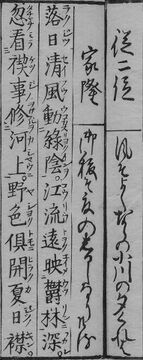 從二位
家隆
風そよくならの小川の夕くれは
御祓そ夏のしるしなりける
落日清風動綠陰。江流遠映欝林深。
忽看禊事修河上。野色俱開夏日襟。